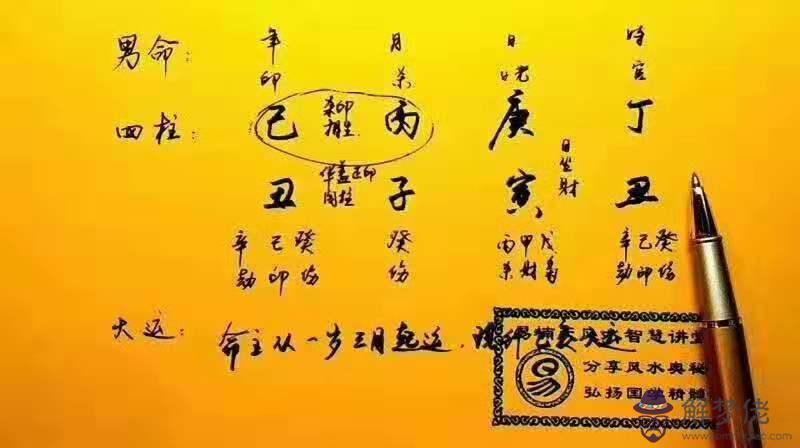 男命： 年 月 日 时
印 杀 官
四柱： 己 杀印相生 丙 庚 丁
丑 华盖 正印 同柱 子 寅 日坐财 丑
辛 己 癸 癸 丙 甲 戊 辛 己 癸
劫 印 伤 伤 杀 财 劫 印 伤
大运： 命主从一岁三月起运，
智慧讲堂
分享风水奥秘
易
弘扬国学精髓
解梦佬